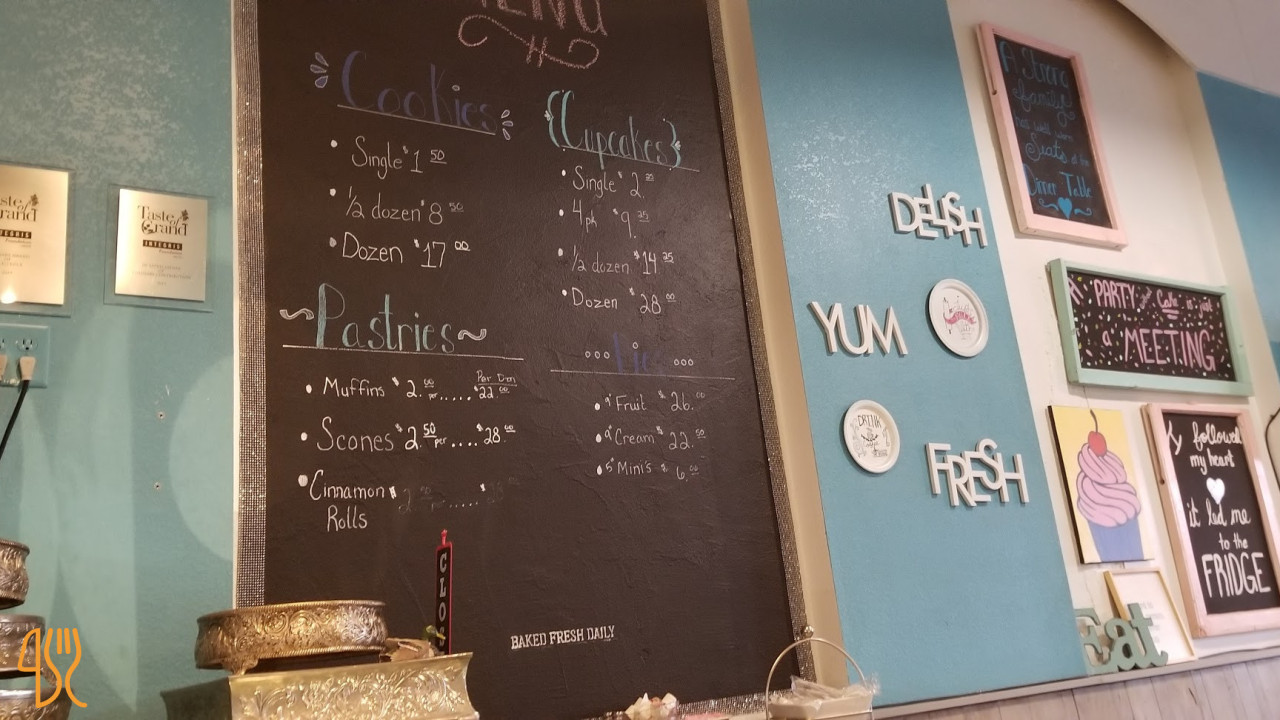 MENU
Cookies
Single $1 50
1/2 dozen $8 50
Dozen $17 00
{Cupcakes}
Single $2 25
4pk $9. 25
1/2 dozen $14 25
Dozen $28 00
~Pastries~
Per Dzn
Muffins $2. 00 per..... $22 00
Scones $2. 50 per.... $28. 00
Cinnamon $
Rolls
Pies
9" Fruit $26. 00
9" Cream $22. 50
5" Mini's $6. 00
CLOS
BAKED FRESH DAILY
Taste
of
Grand
DELISH
YUM
FRESH
DRINK
A Strong
family
Seats at the
Dinner Table
A PARTY without Cake is just
a MEETING
I followed
my heart
it led me
to the
FRIDGE
Eat